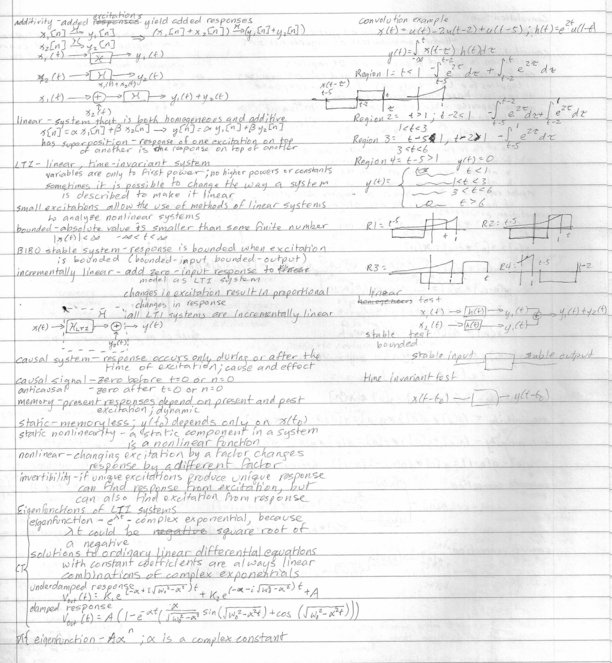 additivity - added excitations yield added responses
x₁[n] →ℋ y₁[n]
x₂[n] →ℋ y₂[n]
(x₁[n] + x₂[n]) →ℋ (y₁[n] + y₂[n])
x₁(t) → ℋ → y₁(t)
x₂(t) → ℋ → y₂(t)
x₁(t) + x₂(t)
x₁(t) → + → ℋ → y₁(t) + y₂(t)
x₂(t)
linear - system that is both homogeneous and additive
x[n] = αx₁[n] + βx₂[n] → y[n] = αy₁[n] + βy₂[n]
has superposition - response of one excitation on top
of another is the response on top of another
LTI - linear, time-invariant system
variables are only to first power; no higher powers or constants
sometimes it is possible to change the way a system
is described to make it linear
small excitations allow the use of methods of linear systems
to analyze nonlinear systems
bounded - absolute value is smaller than some finite number
|x(t)| < ∞ -∞ < t < ∞
BIBO stable system - response is bounded when excitation
is bounded (bounded-input, bounded-output)
incrementally linear - add zero-input response to
model as LTI system
changes in excitation result in proportional
changes in response
ℋ all LTI systems are incrementally linear
x(t) → → + → y(t)
causal system - response occurs only during or after the
time of excitation; cause and effect
causal signal - zero before t=0 or n=0
anticausal - zero after t=0 or n=0
memory - present responses depend on present and past
excitation; dynamic
static - memoryless; y(t₀) depends only on x(t₀)
static nonlinearity - a static component in a system
is a nonlinear function
nonlinear - changing excitation by a factor changes
response by a different factor
invertibility - if unique excitations produce unique response
can find response from excitation, but
can also find excitation from response
Eigenfunctions of LTI systems
eigenfunction - e^λt - complex exponential, because
λt could be negative square root of
a negative
solutions to ordinary linear differential equations
with constant coefficients are always linear
combinations of complex exponentials
CT
underdamped response
V_out(t) = K₁e^(-α+i√(ω₀²-α²))t + K₂e^(-α-i√(ω₀²-α²))t + A
damped response
V_out(t) = A(1-e^-αt(α/√(ω₀²-α²) sin(√(ω₀²-α²)t) + cos(√(ω₀²-α²)t)))
eigenfunction - Aα^n; α is a complex constant
convolution example
x(t) = u(t) - 2u(t-2) + u(t-5); h(t) = e^2t u(1-t)
y(t) = ∫ x(t-τ) h(τ) dτ
Region 1 = t<1
x(t-τ)
t-5
t-2
t
τ
Region 2 = t>1; t-2<1
1<t<3
Region 3 = t-5<1, t-2>1
3<t<6
Region 4 = t-5>1 y(t)=0
y(t) =
t<1
1<t<3
3<t<6
t>6
R1 = t-5
R2 = t-5
R3 =
R4 = t-5 t-2
linear
homogeneous test
x₁(t) → h(t) → y₁(t)
x₂(t) → h(t) → y₂(t)
+ → y₁(t)+y₂(t)
stable test
bounded
stable input stable output
time invariant test
x(t-t₀) → → y(t-t₀)